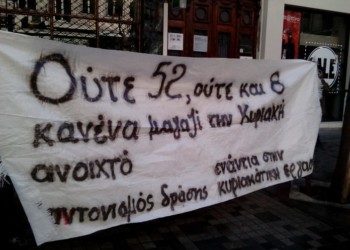 Ούτε 52, ούτε και 8
κανένα μαγαζί την Κυριακή
ανοιχτό ενάντια στην
συντονισμός δράσης κυριακάτικη εργασία
ALE